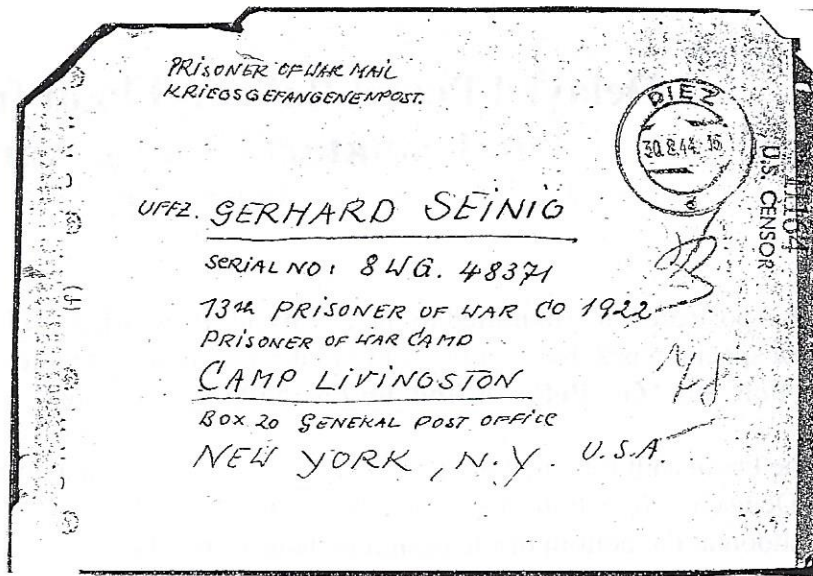 PRISONER OF WAR MAIL
KRIEGSGEFANGENENPOST.
DIEZ
30.8.44. 16
a
U.S. CENSOR
11164
UFFZ. GERHARD SEINIG
SERIAL NO: 8 WG. 48371
13th PRISONER OF WAR CO 1922
PRISONER OF WAR CAMP
CAMP LIVINGSTON
BOX 20 GENERAL POST OFFICE
NEW YORK, N.Y. U.S.A.